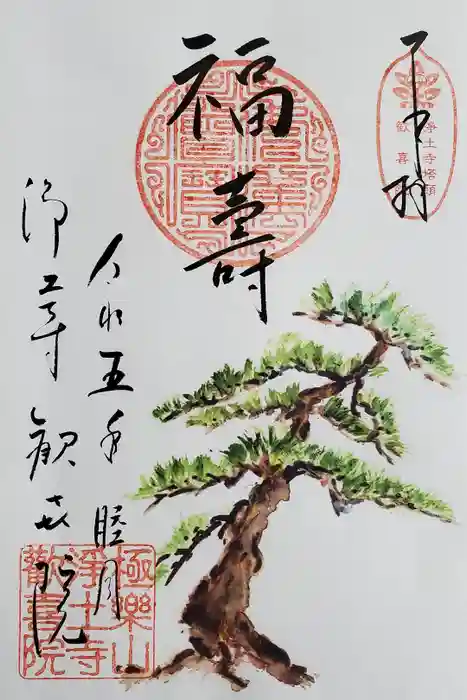 浄土寺塔頭
歓喜院
福壽
令和五年 睦月
浄土寺 歓喜院
極樂山
淨土寺
歡喜院